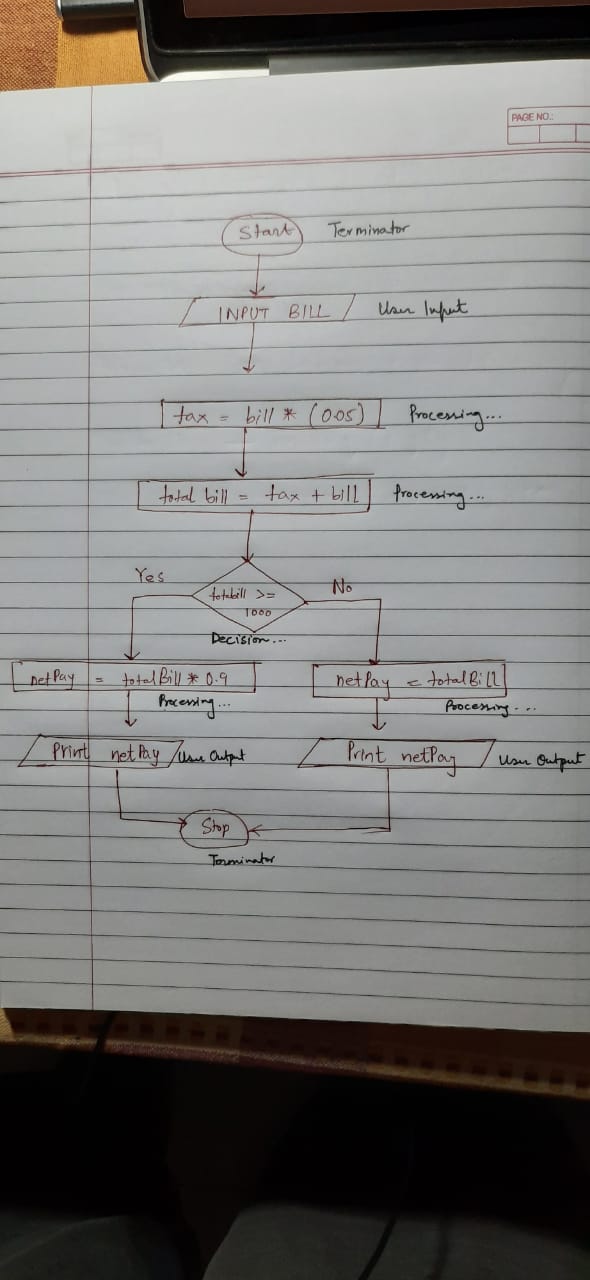 PAGE NO.:
Start Terminator
INPUT BILL User Input
tax = bill * (0.05) Processing...
total bill = tax + bill Processing...
Yes
totalbill >=
1000
No
Decision...
netPay = totalBill * 0.9
Processing...
netPay = totalBill
Processing...
Print netPay User Output
Print netPay User Output
Stop
Terminator